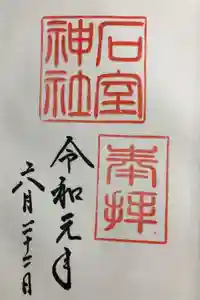 奉拝
石室
神社
令和元年
六月二十二日